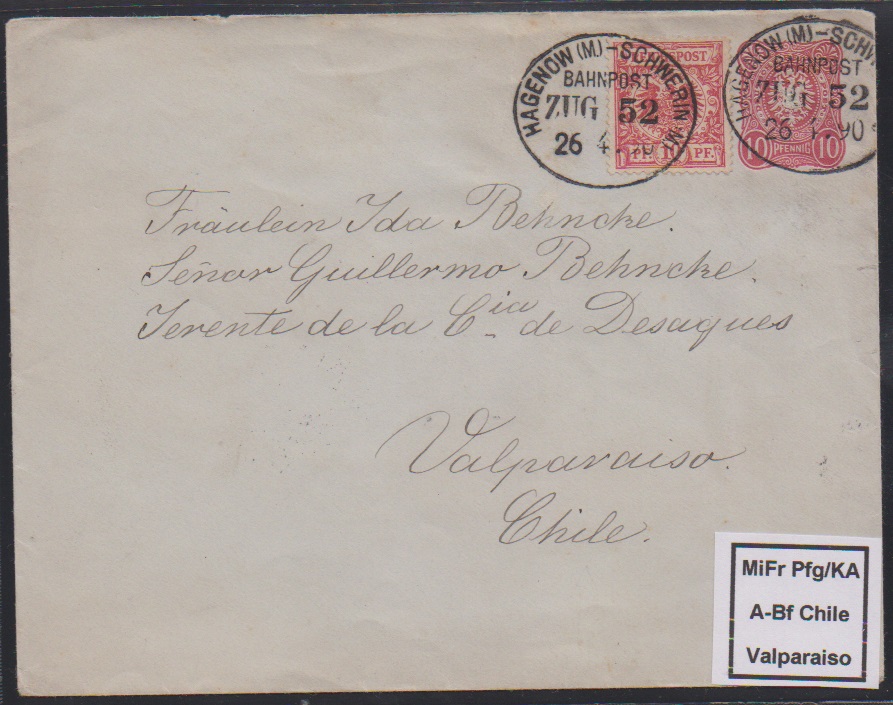 HAGENOW (M)-SCHWERIN M.
BAHNPOST
ZUG 52
26 4.90
REICHSPOST
PF. 10 PF.
HAGENOW (M)-SCHW
BAHNPOST
ZUG 52
26 4.90
10 PFENNIG 10
Fräulein Ida Behncke.
Señor Guillermo Behncke.
Jerente de la Cia de Desagues
Valparaiso.
Chile.
MiFr Pfg/KA
A-Bf Chile
Valparaiso